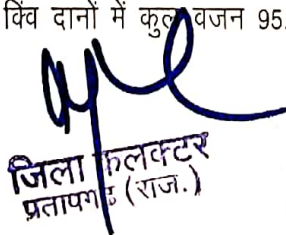 क्विं दानों में कुल वजन 95.
जिला कलक्टर
प्रतापगढ (राज.)